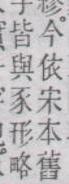 今依宋本舊
皆與豕形略